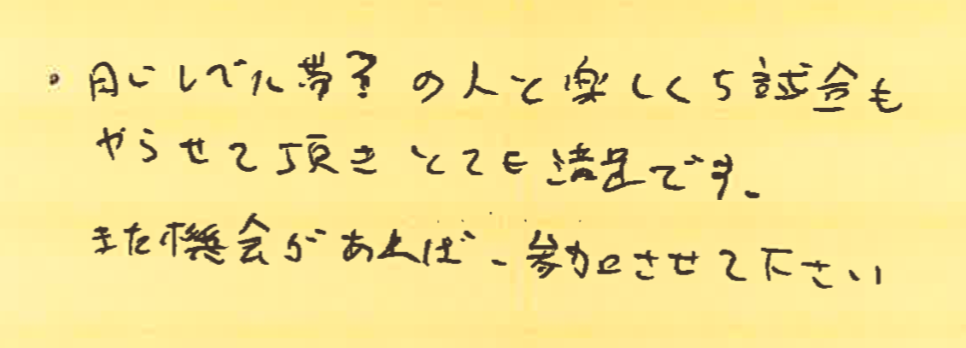 ・同じレベル帯?の人と楽しく5試合も
やらせて頂きとても満足です。
また機会があれば、参加させて下さい